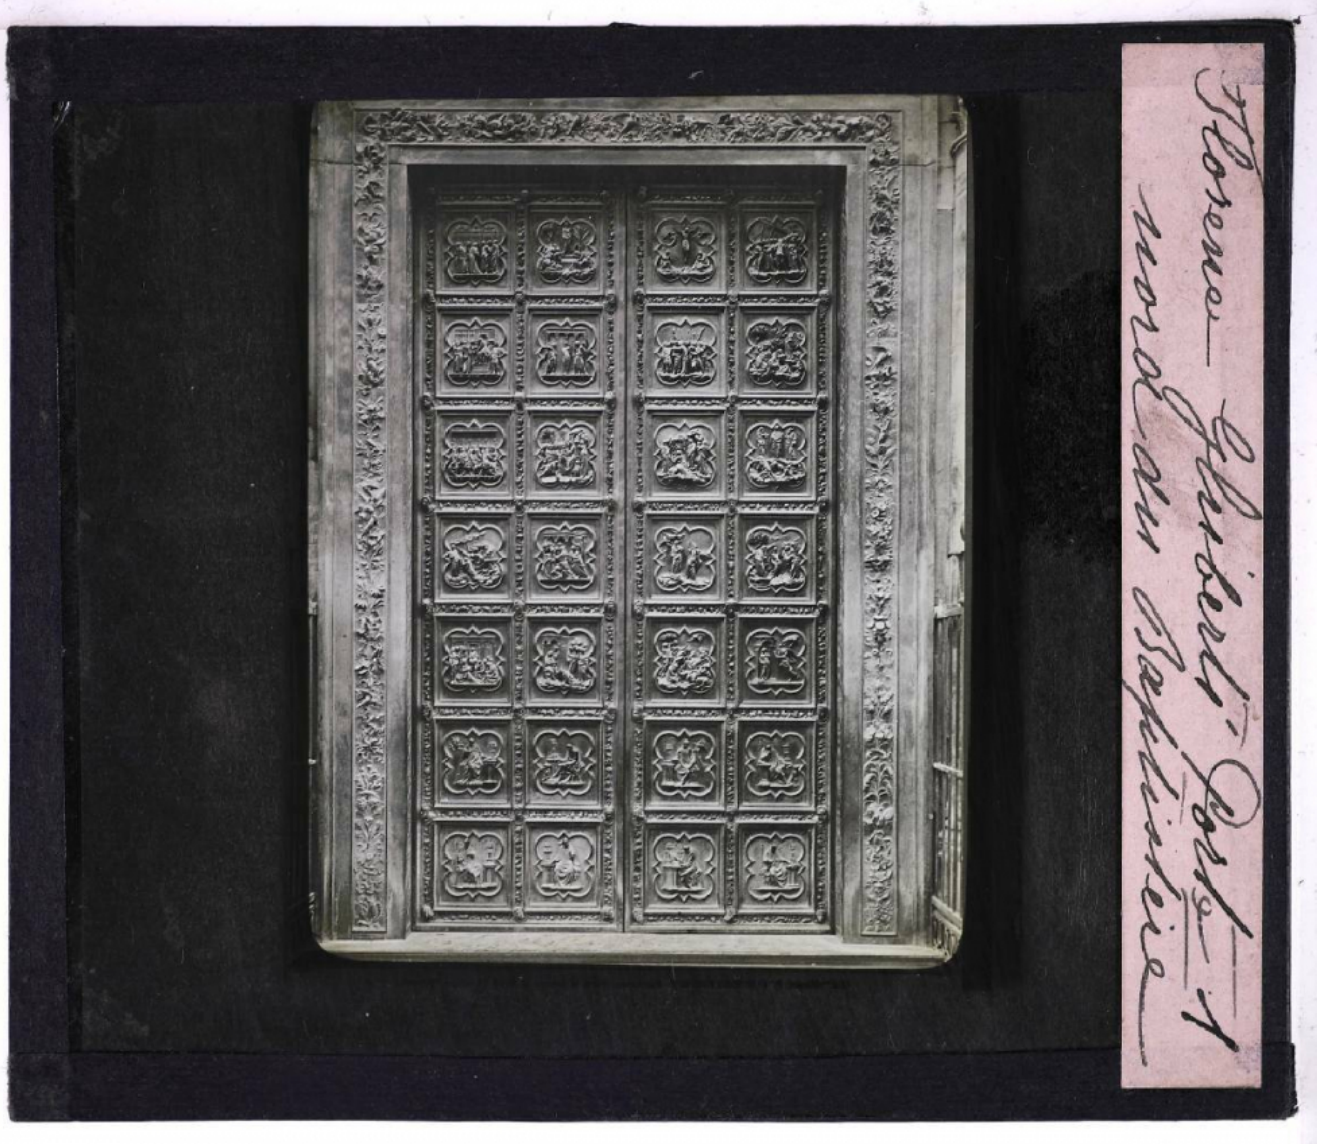 Florence – Ghiberti Porte
nord du Baptistère